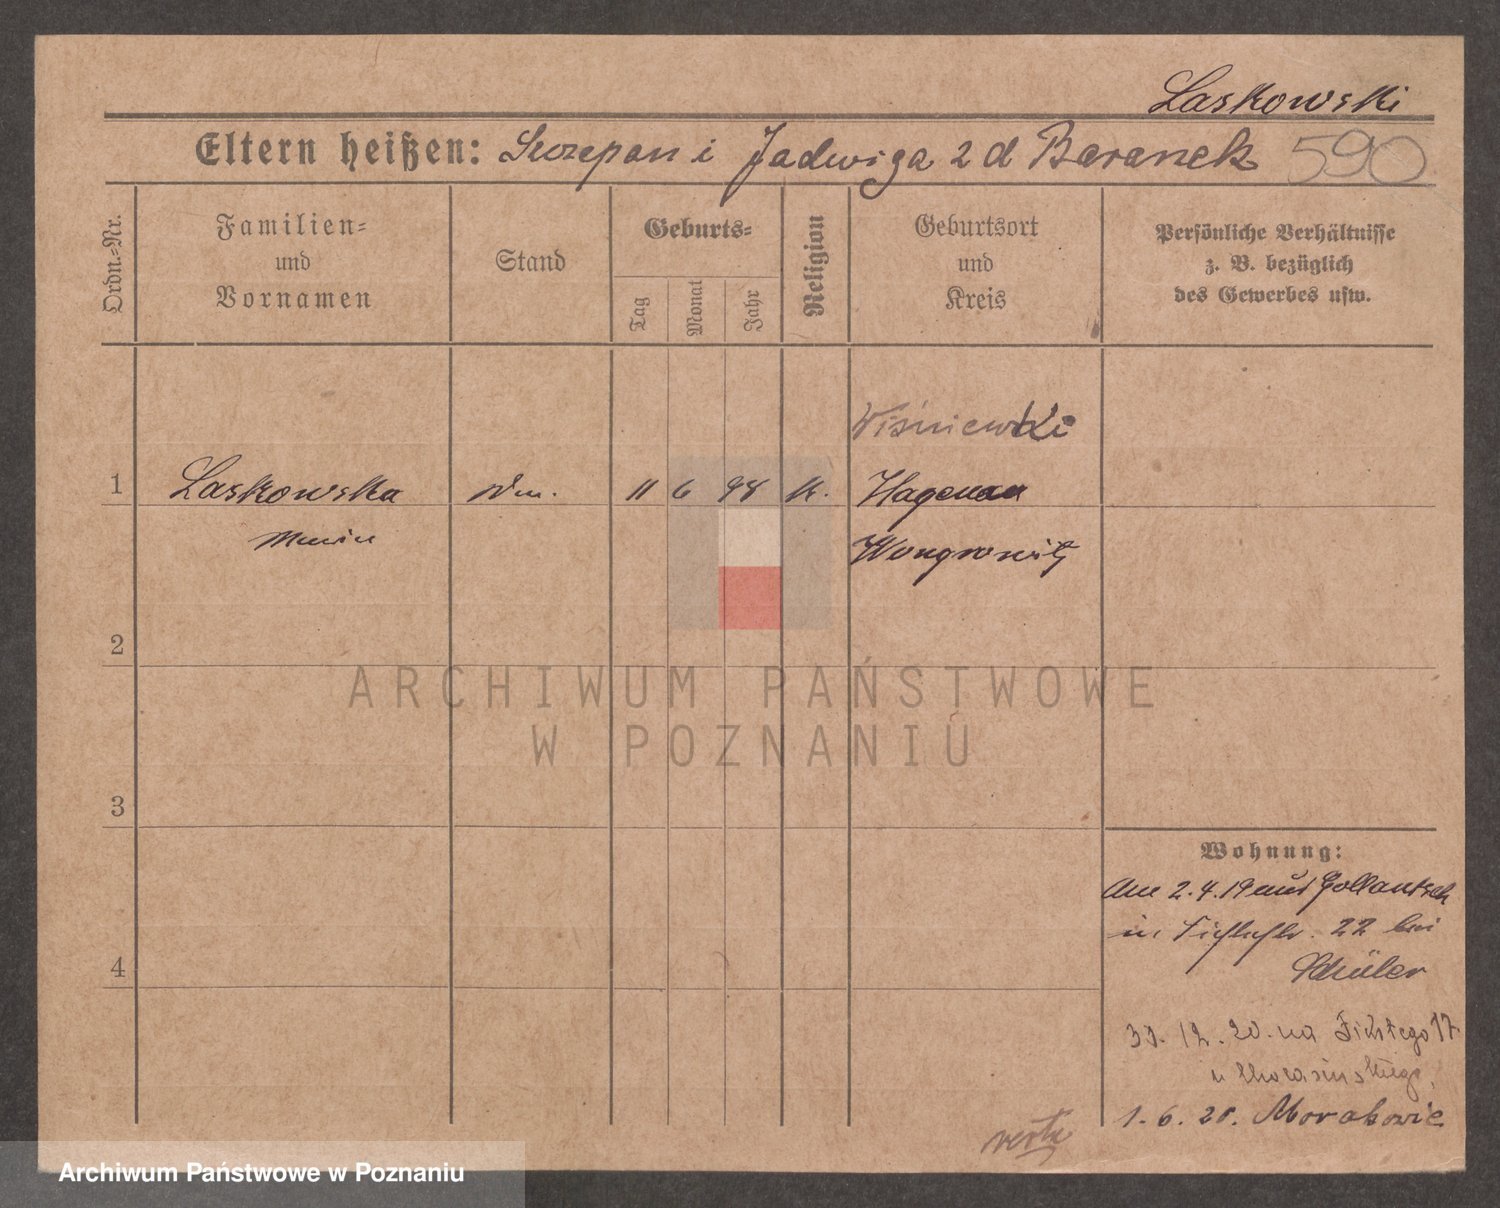 Laskowski
Eltern heißen: Szczepan i Jadwiga 2 d Baranek 590
Ordn.-Nr.
Familien-
und
Vornamen
Stand
Geburts-
Tag
Monat
Jahr
Religion
Geburtsort
und
Kreis
Persönliche Verhältnisse
z. B. bezüglich
des Gewerbes usw.
Wiśniewski
1 Laskowska 11 6 98 k. Hagenau
Wongrowitz
2
3
4
Wohnung:
Am 2.4.19 aus Gollantsch
in 22 bei
Schüler
31. 12. 20. na Fichtego 17
u
1. 6. 21. Morakowie
verte
ARCHIWUM PAŃSTWOWE
W POZNANIU
Archiwum Państwowe w Poznaniu